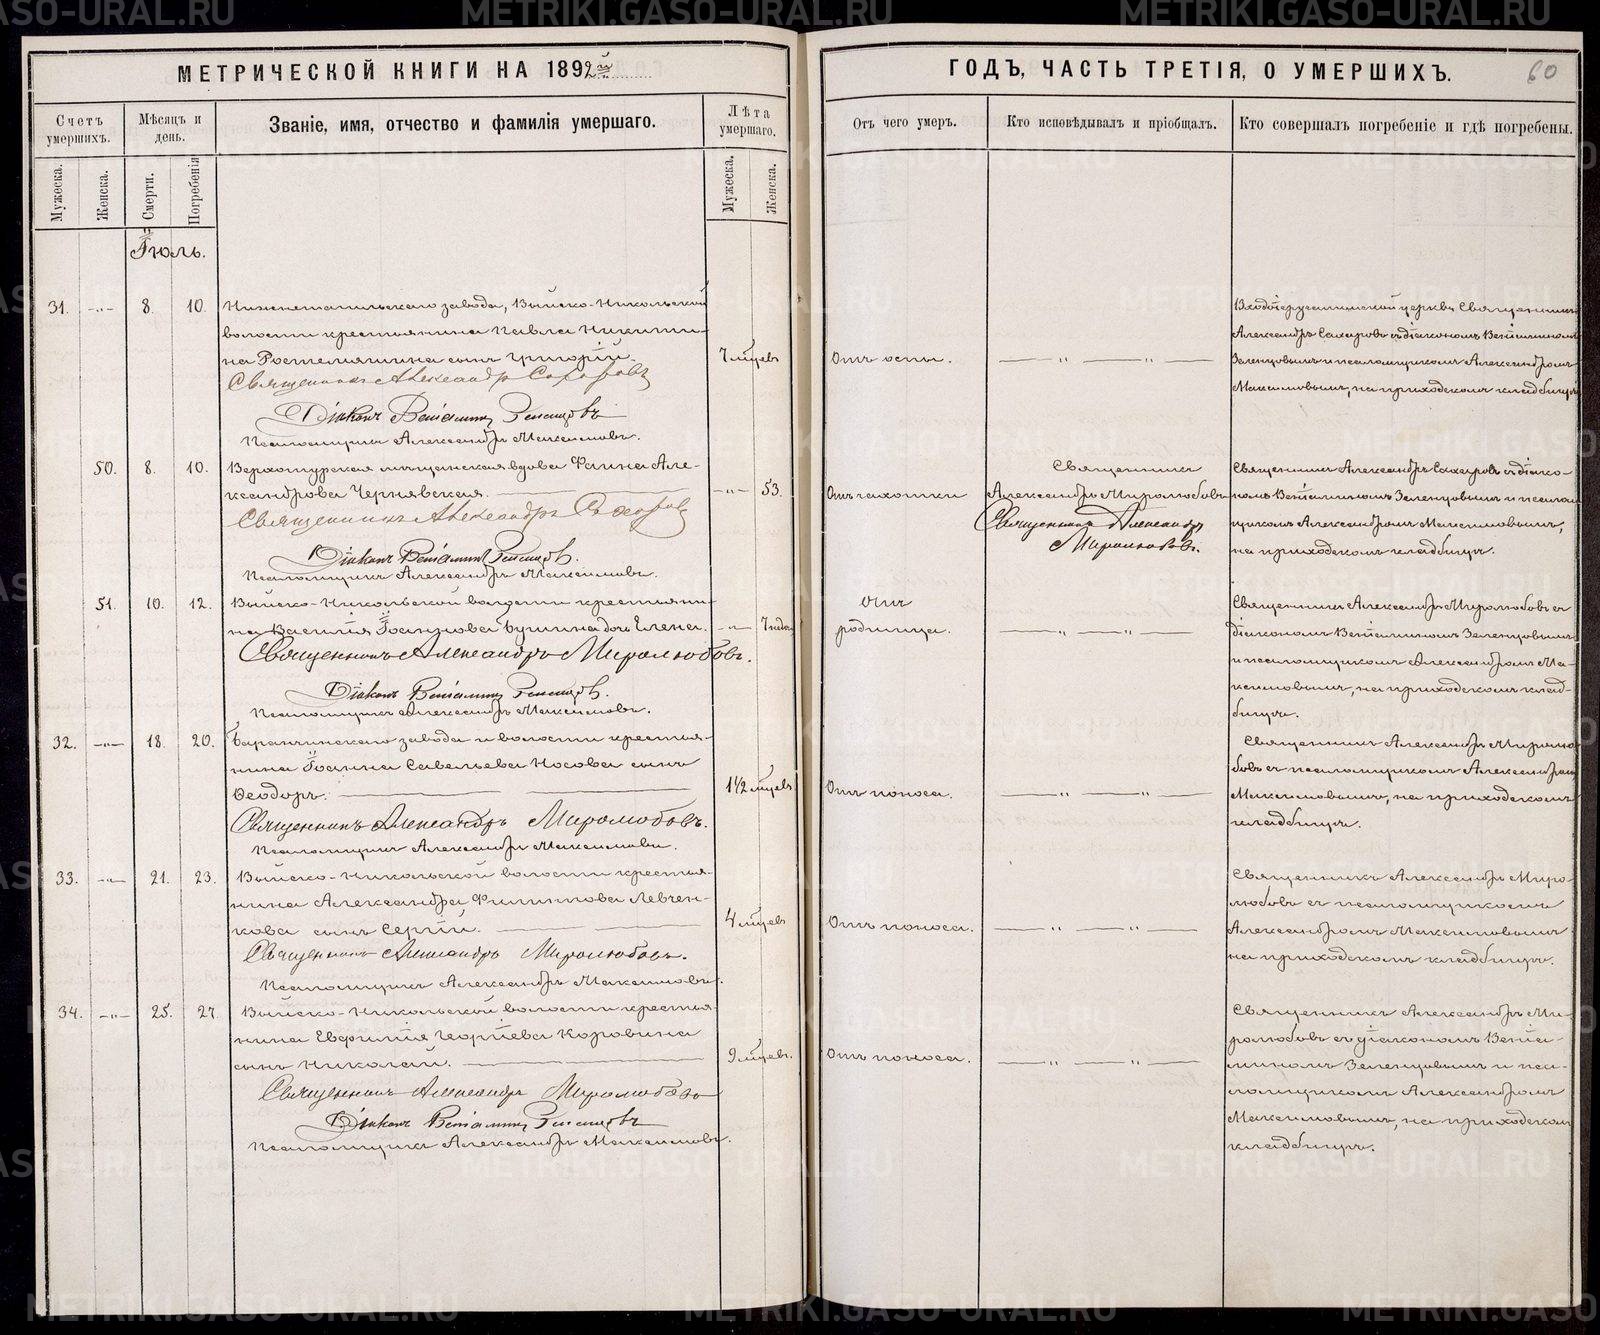 МЕТРИЧЕСКОЙ КНИГИ НА 1892й
ГОДЪ, ЧАСТЬ ТРЕТІЯ, О УМЕРШИХЪ.
60
Счетъ умершихъ.
Мѣсяцъ и день.
Званіе, имя, отчество и фамилія умершаго.
Лѣта умершаго.
Отъ чего умеръ.
Кто исповѣдывалъ и пріобщалъ.
Кто совершалъ погребеніе и гдѣ погребены.
Мужеска.
Женска.
Смерти.
Погребенія
Мужеска.
Женска.
Іюль.
31. -„- 8. 10.
Нижнетагильскаго завода, Выйско-Никольской
волости крестьянина Павла Никити-
на сынъ Григорій.
Священникъ Александръ Сахаровъ
Діаконъ Веніаминъ Зеленцовъ
Псаломщикъ Александръ Максимовъ.
7 мцевъ
Отъ оспы.
Входоіерусалимской церкви Священникъ
Александръ Сахаровъ съ діакономъ Веніаминомъ
Зеленцовымъ и псаломщикомъ Александромъ
Максимовымъ, на приходскомъ кладбищѣ
50. 8. 10.
Верхотурская мѣщанская вдова Фаина Але-
ксандрова Чернявская.
Священникъ Александръ Сахаровъ
Діаконъ Веніаминъ Зеленцовъ.
Псаломщикъ Александръ Максимовъ.
-„- 53.
Отъ чахотки
Священникъ
Александръ Миролюбовъ
Священникъ Александръ
Миролюбовъ.
Священникъ Александръ Сахаровъ съ діако-
номъ Веніаминомъ Зеленцовымъ и псалом
щикомъ Александромъ Максимовымъ,
на приходскомъ кладбищѣ.
51. 10. 12.
Выйско-Никольской волости крестьяни-
на Василія Іоаннова дочь Елена.
Священникъ Александръ Миролюбовъ.
Діаконъ Веніаминъ Зеленцовъ.
Псаломщикъ Александръ Максимовъ.
-„-
родимца.
Священникъ Александръ Миролюбовъ съ
діакономъ Веніаминомъ Зеленцовымъ
и псаломщикомъ Александромъ Ма-
ксимовымъ, на приходскомъ клад-
бищѣ.
32. -„- 18. 20.
Баранчинскаго завода и волости крестья-
нина Іоанна Савельева Носова сынъ
Ѳеодоръ.
Священникъ Александръ Миролюбовъ.
Псаломщикъ Александръ Максимовъ.
1 1/2 мцевъ
Отъ поноса.
Священникъ Александръ Миролю
бовъ съ псаломщикомъ Александромъ
Максимовымъ, на приходскомъ
кладбищѣ.
33. -„- 21. 23.
Выйско-Никольской волости крестья-
нина Александра Филиппова Левчен-
кова сынъ Сергій.
Священникъ Александръ Миролюбовъ.
Псаломщикъ Александръ Максимовъ.
4 мцевъ
Отъ поноса.
Священникъ Александръ Миро-
любовъ съ псаломщикомъ
Александромъ Максимовымъ
на приходскомъ кладбищѣ.
34. -„- 25. 27.
Выйско-Никольской волости крестья-
нина Евфимія Георгіева Коровина
сынъ Николай.
Священникъ Александръ Миролюбовъ
Діаконъ Веніаминъ Зеленцовъ
Псаломщикъ Александръ Максимовъ.
9 мцевъ.
Отъ поноса.
Священникъ Александръ Ми-
ролюбовъ съ діакономъ Веніа-
миномъ Зеленцовымъ и пса-
ломщикомъ Александромъ
Максимовымъ, на приходскомъ
кладбищѣ.
METRIKI.GASO-URAL.RU